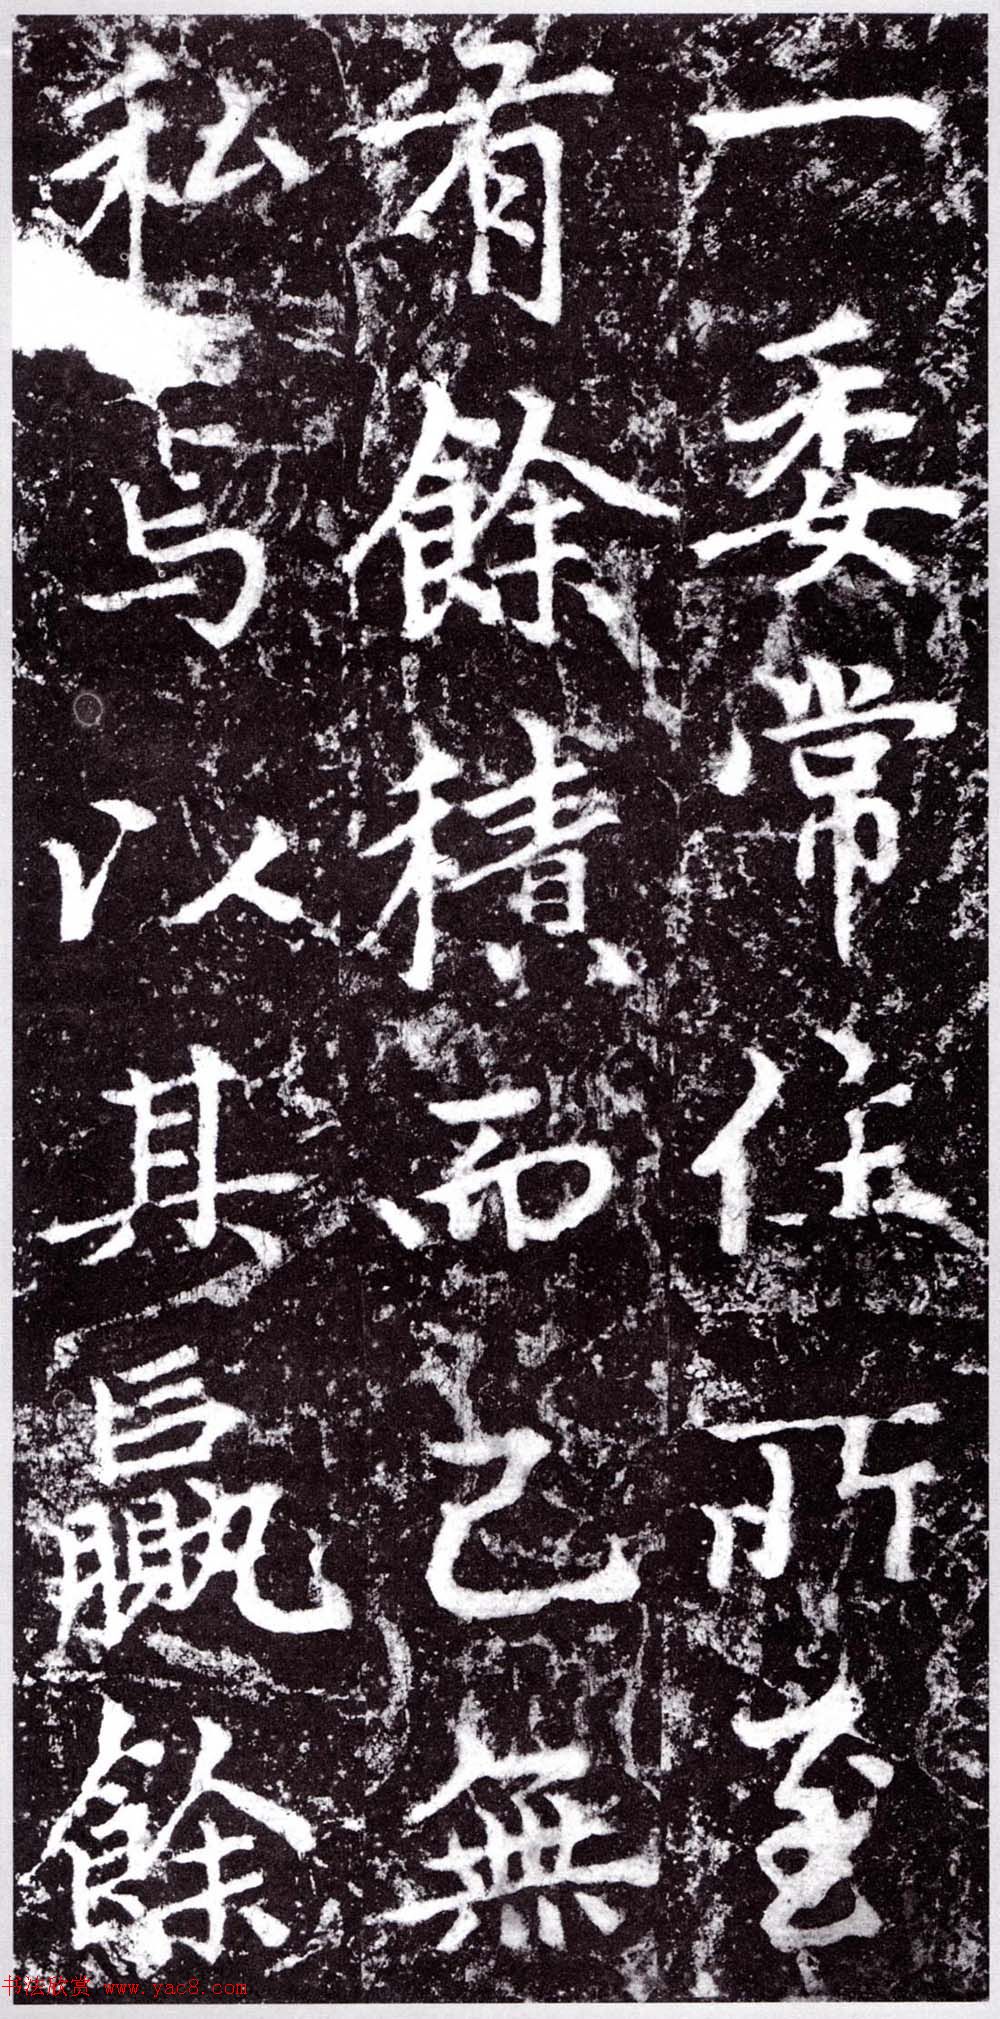 一委常住所至
有餘積而已無
私与以其贏餘
书法欣赏 www.yac8.com